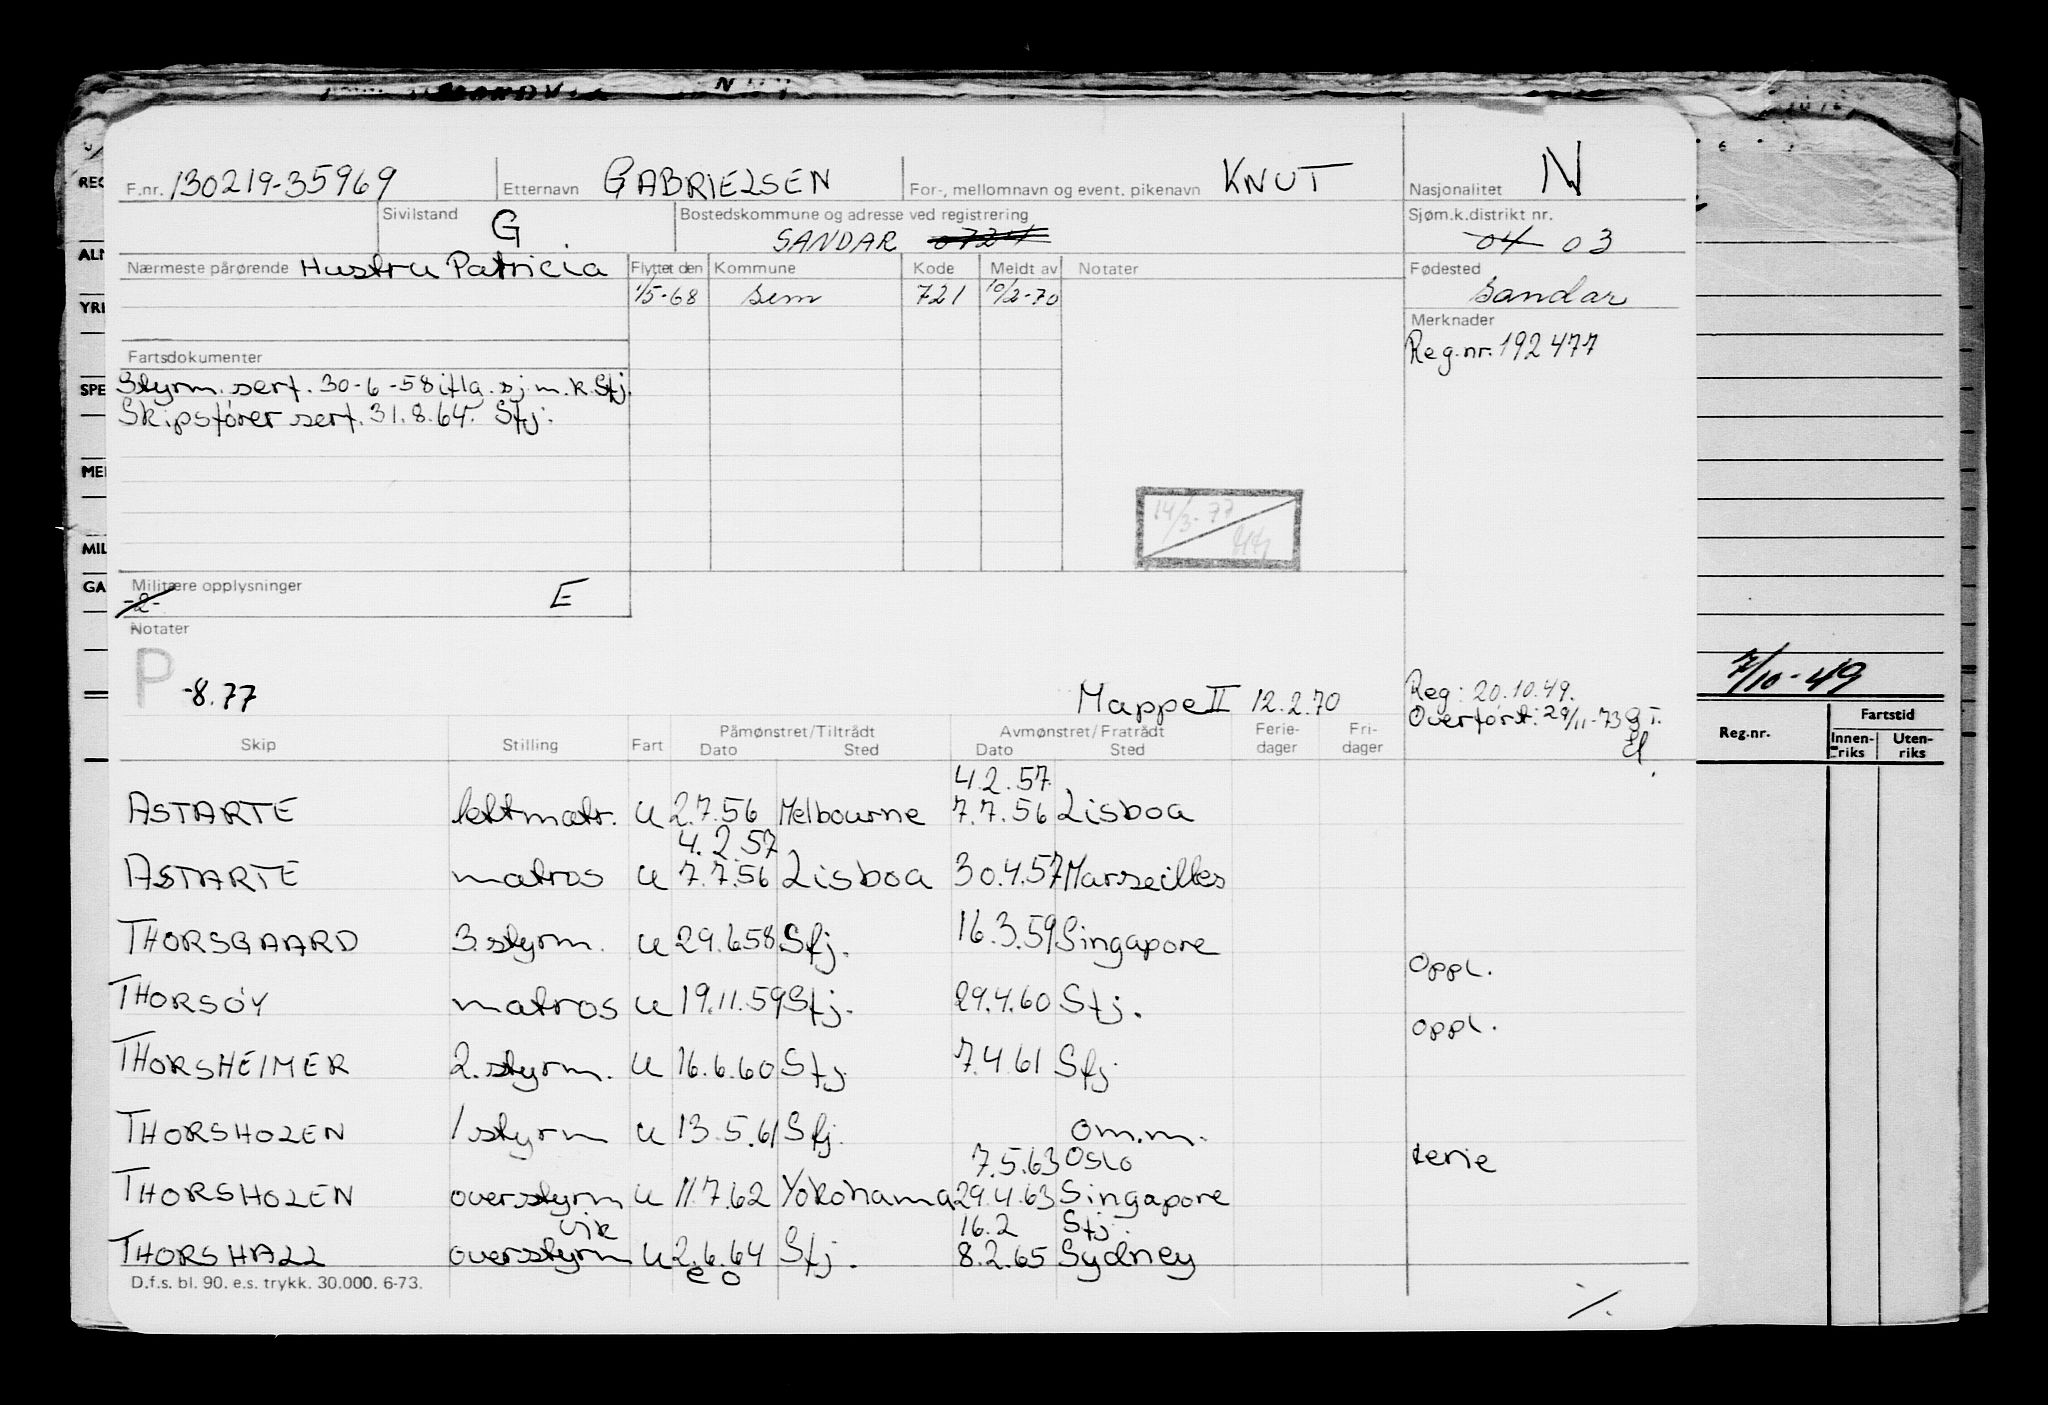 F.nr. 130219-35969 Etternavn GABRIELSEN For-, mellomnavn og event. pikenavn KNUT Nasjonalitet N
Sivilstand G Bostedskommune og adresse ved registrering SANDAR 0724 Sjøm.k.distrikt nr. 04 03
Nærmeste pårørende Hustru Patricia Flyttet den Kommune Kode Meldt av Notater Fødested Sandar
1/5-68 Sem 721 10/2-70
Merknader
Reg.nr. 192477
Fartsdokumenter
Styrm. sert. 30-6-58 iflg. sj.m.k. Sfj.
Skipsfører sert. 31.8.64. Sfj.
14/3-77
Militære opplysninger E
-2-
Notater
P -8.77
Mappe II 12.2.70
Reg: 20.10.49.
Overført: 29/11-73
Skip Stilling Fart Påmønstret/Tiltrådt Dato Sted Avmønstret/Fratrådt Dato Sted Ferie-dager Fri-dager
4.2.57
ASTARTE lettmatr. U 2.7.56 Melbourne 7.7.56 Lisboa
4.2.57
ASTARTE matros U 7.7.56 Lisboa 30.4.57 Marseilles
THORSGAARD 3.styrm. U 29.6.58 Sfj. 16.3.59 Singapore
Oppl.
THORSØY matros U 19.11.59 Sfj. 29.4.60 Sfj.
oppl.
THORSHEIMER 2.styrm. U 16.6.60 Sfj 7.4.61 Sfj
THORSHOLEN 1 styrm U 13.5.61 Sfj. om.m.
7.5.63 Oslo ferie
THORSHOLEN overstyrm U 11.7.62 Yokohama 29.4.63 Singapore
vik 16.2 Sfj.
THORSHALL overstyrm U 2.6.64 Sfj. 8.2.65 Sydney
eo
D.f.s. bl. 90. e.s. trykk. 30.000. 6-73.
%.
REG
ALM
YRI
SPE
MEI
MIL
GA
7/10-49
Reg.nr. Fartstid
Innen-riks Uten-riks